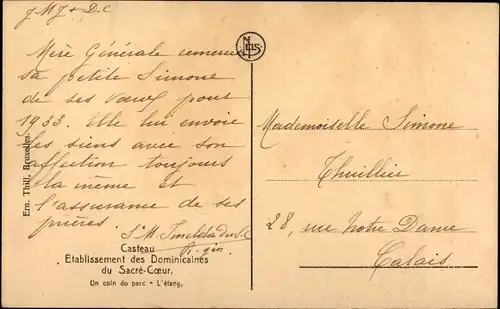 J M J + D.C
Mère Générale remercie
sa petite Simone
de ses vœux pour
1933. Elle lui envoie
les siens avec son
affection toujours
la même et
l'assurance de ses
prières
S. M.
Casteau
Etablissement des Dominicaines
du Sacré-Cœur.
Un coin du parc - L'étang,
Ern. Thill, Bruxelles.
Mademoiselle Simone
Thuillier
28, rue Notre Dame
Calais